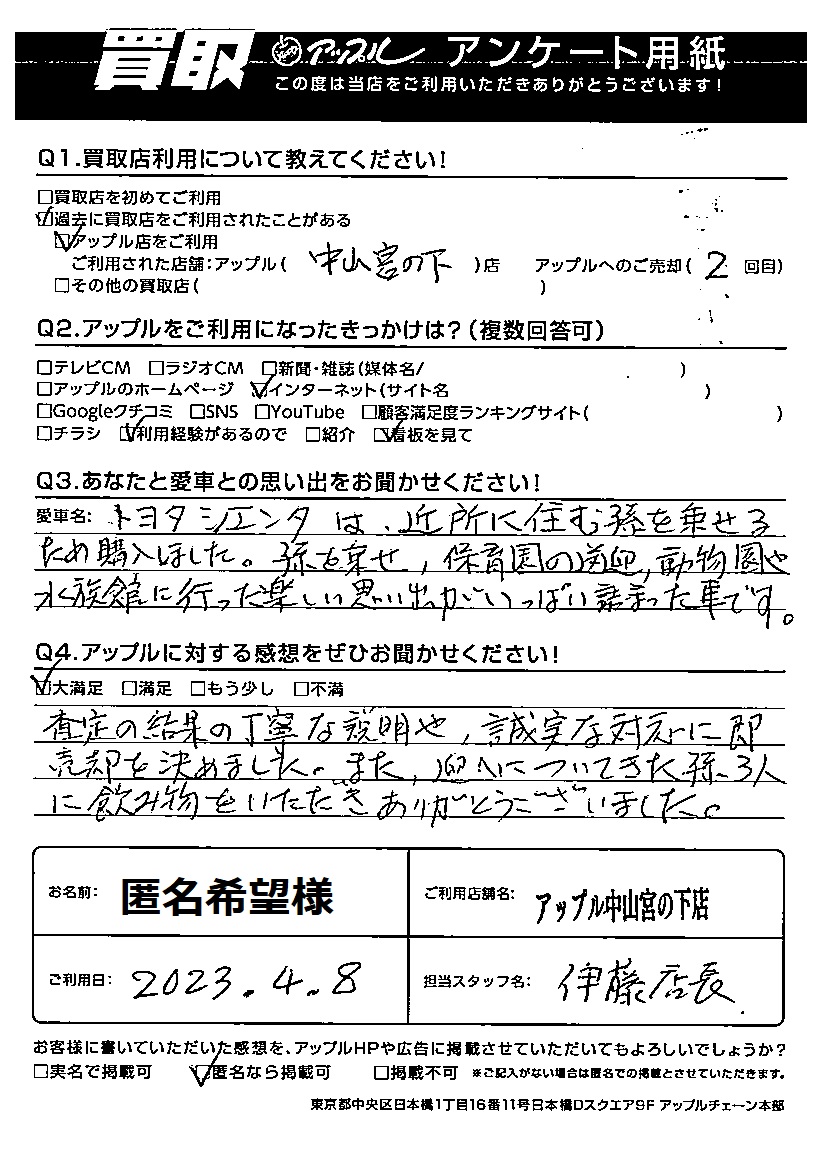 買取 アップル アンケート用紙
この度は当店をご利用いただきありがとうございます！
Q1.買取店利用について教えてください！
□買取店を初めてご利用
☑過去に買取店をご利用されたことがある
☑アップル店をご利用
ご利用された店舗：アップル( 中山宮の下 )店 アップルへのご売却( 2 回目)
□その他の買取店( )
Q2.アップルをご利用になったきっかけは？(複数回答可)
□テレビCM □ラジオCM □新聞・雑誌(媒体名/ )
□アップルのホームページ ☑インターネット(サイト名 )
□Googleクチコミ □SNS □YouTube □顧客満足度ランキングサイト( )
□チラシ ☑利用経験があるので □紹介 ☑看板を見て
Q3.あなたと愛車との思い出をお聞かせください！
愛車名： トヨタシエンタは、近所に住む孫を乗せる
ため購入しました。孫を乗せ，保育園の送迎，動物園や
水族館に行った楽しい思い出がいっぱい詰まった車です。
Q4.アップルに対する感想をぜひお聞かせください！
☑大満足 □満足 □もう少し □不満
査定の結果の丁寧な説明や，誠実な対応に即
売却を決めました。また，迎えについてきた孫、3人
に飲み物をいただきありがとうございました。
お名前： 匿名希望様 ご利用店舗名： アップル中山宮の下店
ご利用日： 2023.4.8 担当スタッフ名： 伊藤店長
お客様に書いていただいた感想を、アップルHPや広告に掲載させていただいてもよろしいでしょうか？
□実名で掲載可 ☑匿名なら掲載可 □掲載不可 ※ご記入がない場合は匿名での掲載とさせていただきます。
東京都中央区日本橋1丁目16番11号日本橋Dスクエア9F アップルチェーン本部